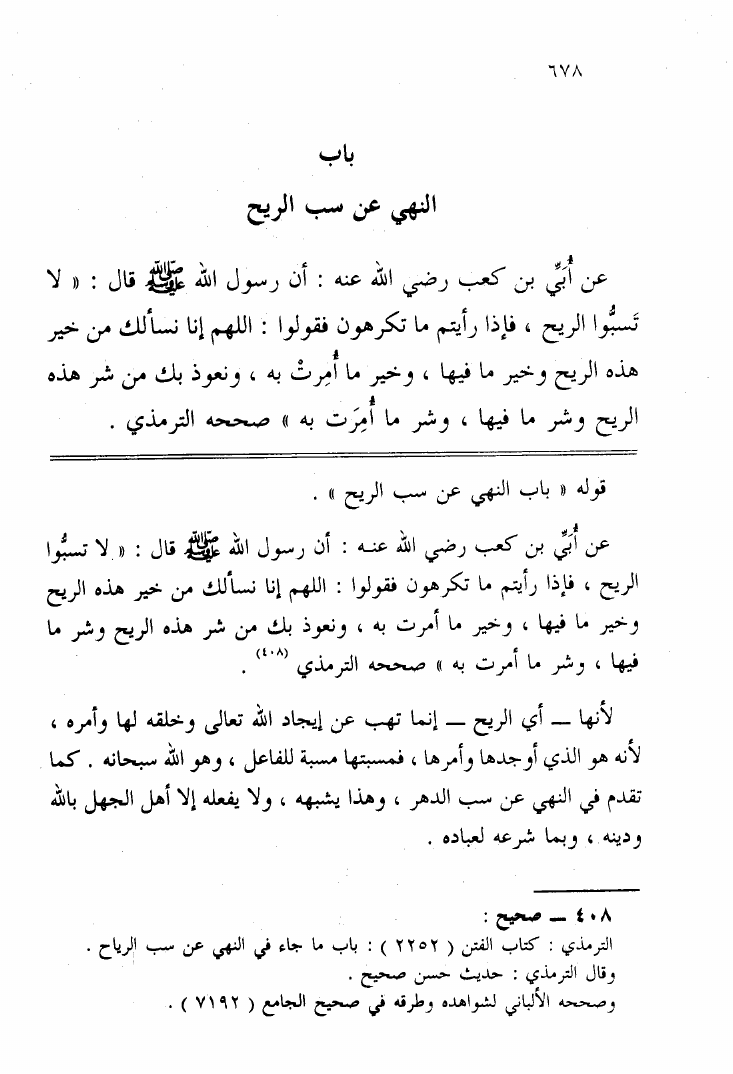 ٦٧٨
باب
النهي عن سب الريح
عن أُبَيِّ بن كعب رضي الله عنه : أن رسول الله ﷺ قال : « لا
تَسبُّوا الريح ، فإذا رأيتم ما تكرهون فقولوا : اللهم إنا نسألك من خير
هذه الريح وخير ما فيها ، وخير ما أُمِرتْ به ، ونعوذ بك من شر هذه
الريح وشر ما فيها ، وشر ما أُمِرَت به » صححه الترمذي .
قوله « باب النهي عن سب الريح » .
عن أُبَيِّ بن كعب رضي الله عنـه : أن رسول الله ﷺ قال : « لا تسبُّوا
الريح ، فإذا رأيتم ما تكرهون فقولوا : اللهم إنا نسألك من خير هذه الريح
وخير ما فيها ، وخير ما أمرت به ، ونعوذ بك من شر هذه الريح وشر ما
فيها ، وشر ما أمرت به » صححه الترمذي (٤٠٨) .
لأنها ــ أي الريح ــ إنما تهب عن إيجاد الله تعالى وخلقه لها وأمره ،
لأنه هو الذي أوجدها وأمرها ، فمسبتها مسبة للفاعل ، وهو الله سبحانه . كما
تقدم في النهي عن سب الدهر ، وهذا يشبهه ، ولا يفعله إلا أهل الجهل بالله
ودينه ، وبما شرعه لعباده .
٤٠٨ ــ صحيح :
الترمذي : كتاب الفتن ( ٢٢٥٢ ) : باب ما جاء في النهي عن سب الرياح .
وقال الترمذي : حديث حسن صحيح .
وصححه الألباني لشواهده وطرقه في صحيح الجامع ( ٧١٩٢ ) .